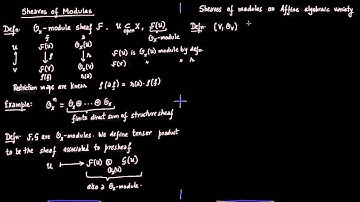 Sheaves of Modules
Defn. 𝒪ₓ-module sheaf ℱ. U ⊂ open X, ℱ(U)
𝒪ₓ-module
U ℱ(U) ℱ(U) is 𝒪ₓ(U) module by defn.
V ℱ(V) ℱ(V)
Restriction maps are linear
Example: 𝒪ₓⁿ = 𝒪ₓ ⊕ ··· ⊕ 𝒪ₓ
finite direct sum of structure sheaf
Defn. ℱ, 𝒢 are 𝒪ₓ-modules. We define tensor product
to be the sheaf associated to presheaf
U ⟼ ℱ(U) ⊗ 𝒢(U)
𝒪ₓ(U)
also a 𝒪ₓ-module.
Sheaves of modules on Affine algebraic variety
Defn. (V, 𝒪ᵥ)